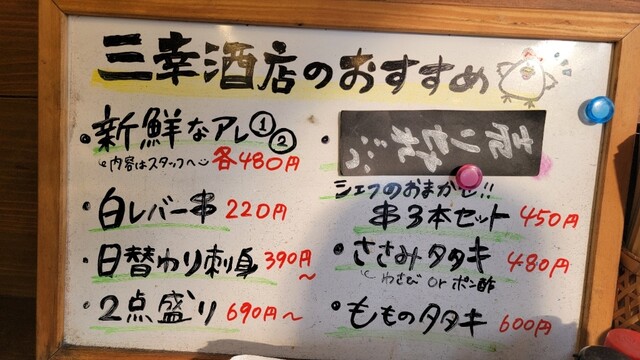 三幸酒店のおすすめ
・新鮮なアレ①②
内容はスタッフへ
各480円
・白レバー串 220円
・日替わり刺身 390円～
・2点盛り 690円～
シェフのおまかせ!!
串3本セット 450円
・ささみタタキ 480円
わさび or ポン酢
・もものタタキ 600円